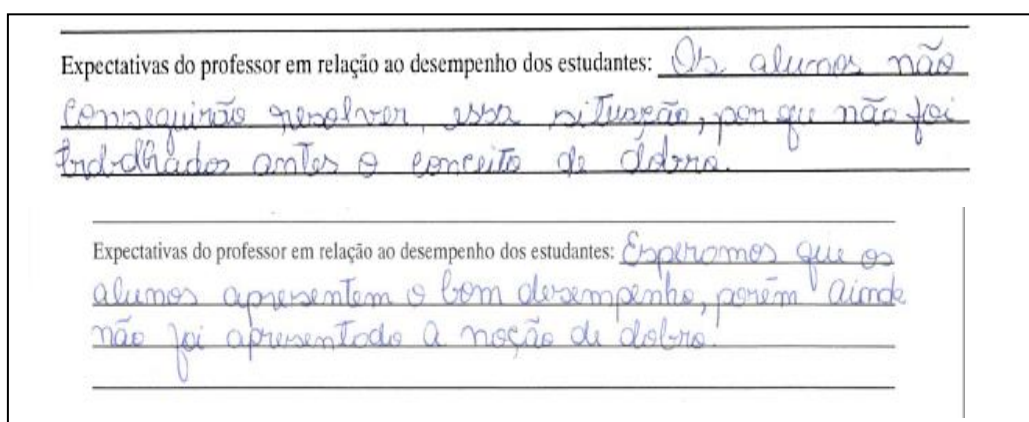 Expectativas do professor em relação ao desempenho dos estudantes: Os alunos não
conseguirão resolver, essa situação, por que não foi
trabalhados antes o conceito de dobro.
Expectativas do professor em relação ao desempenho dos estudantes: Esperamos que os
alunos apresentem o bom desempenho, porém ainda
não foi apresentado a noção de dobro.